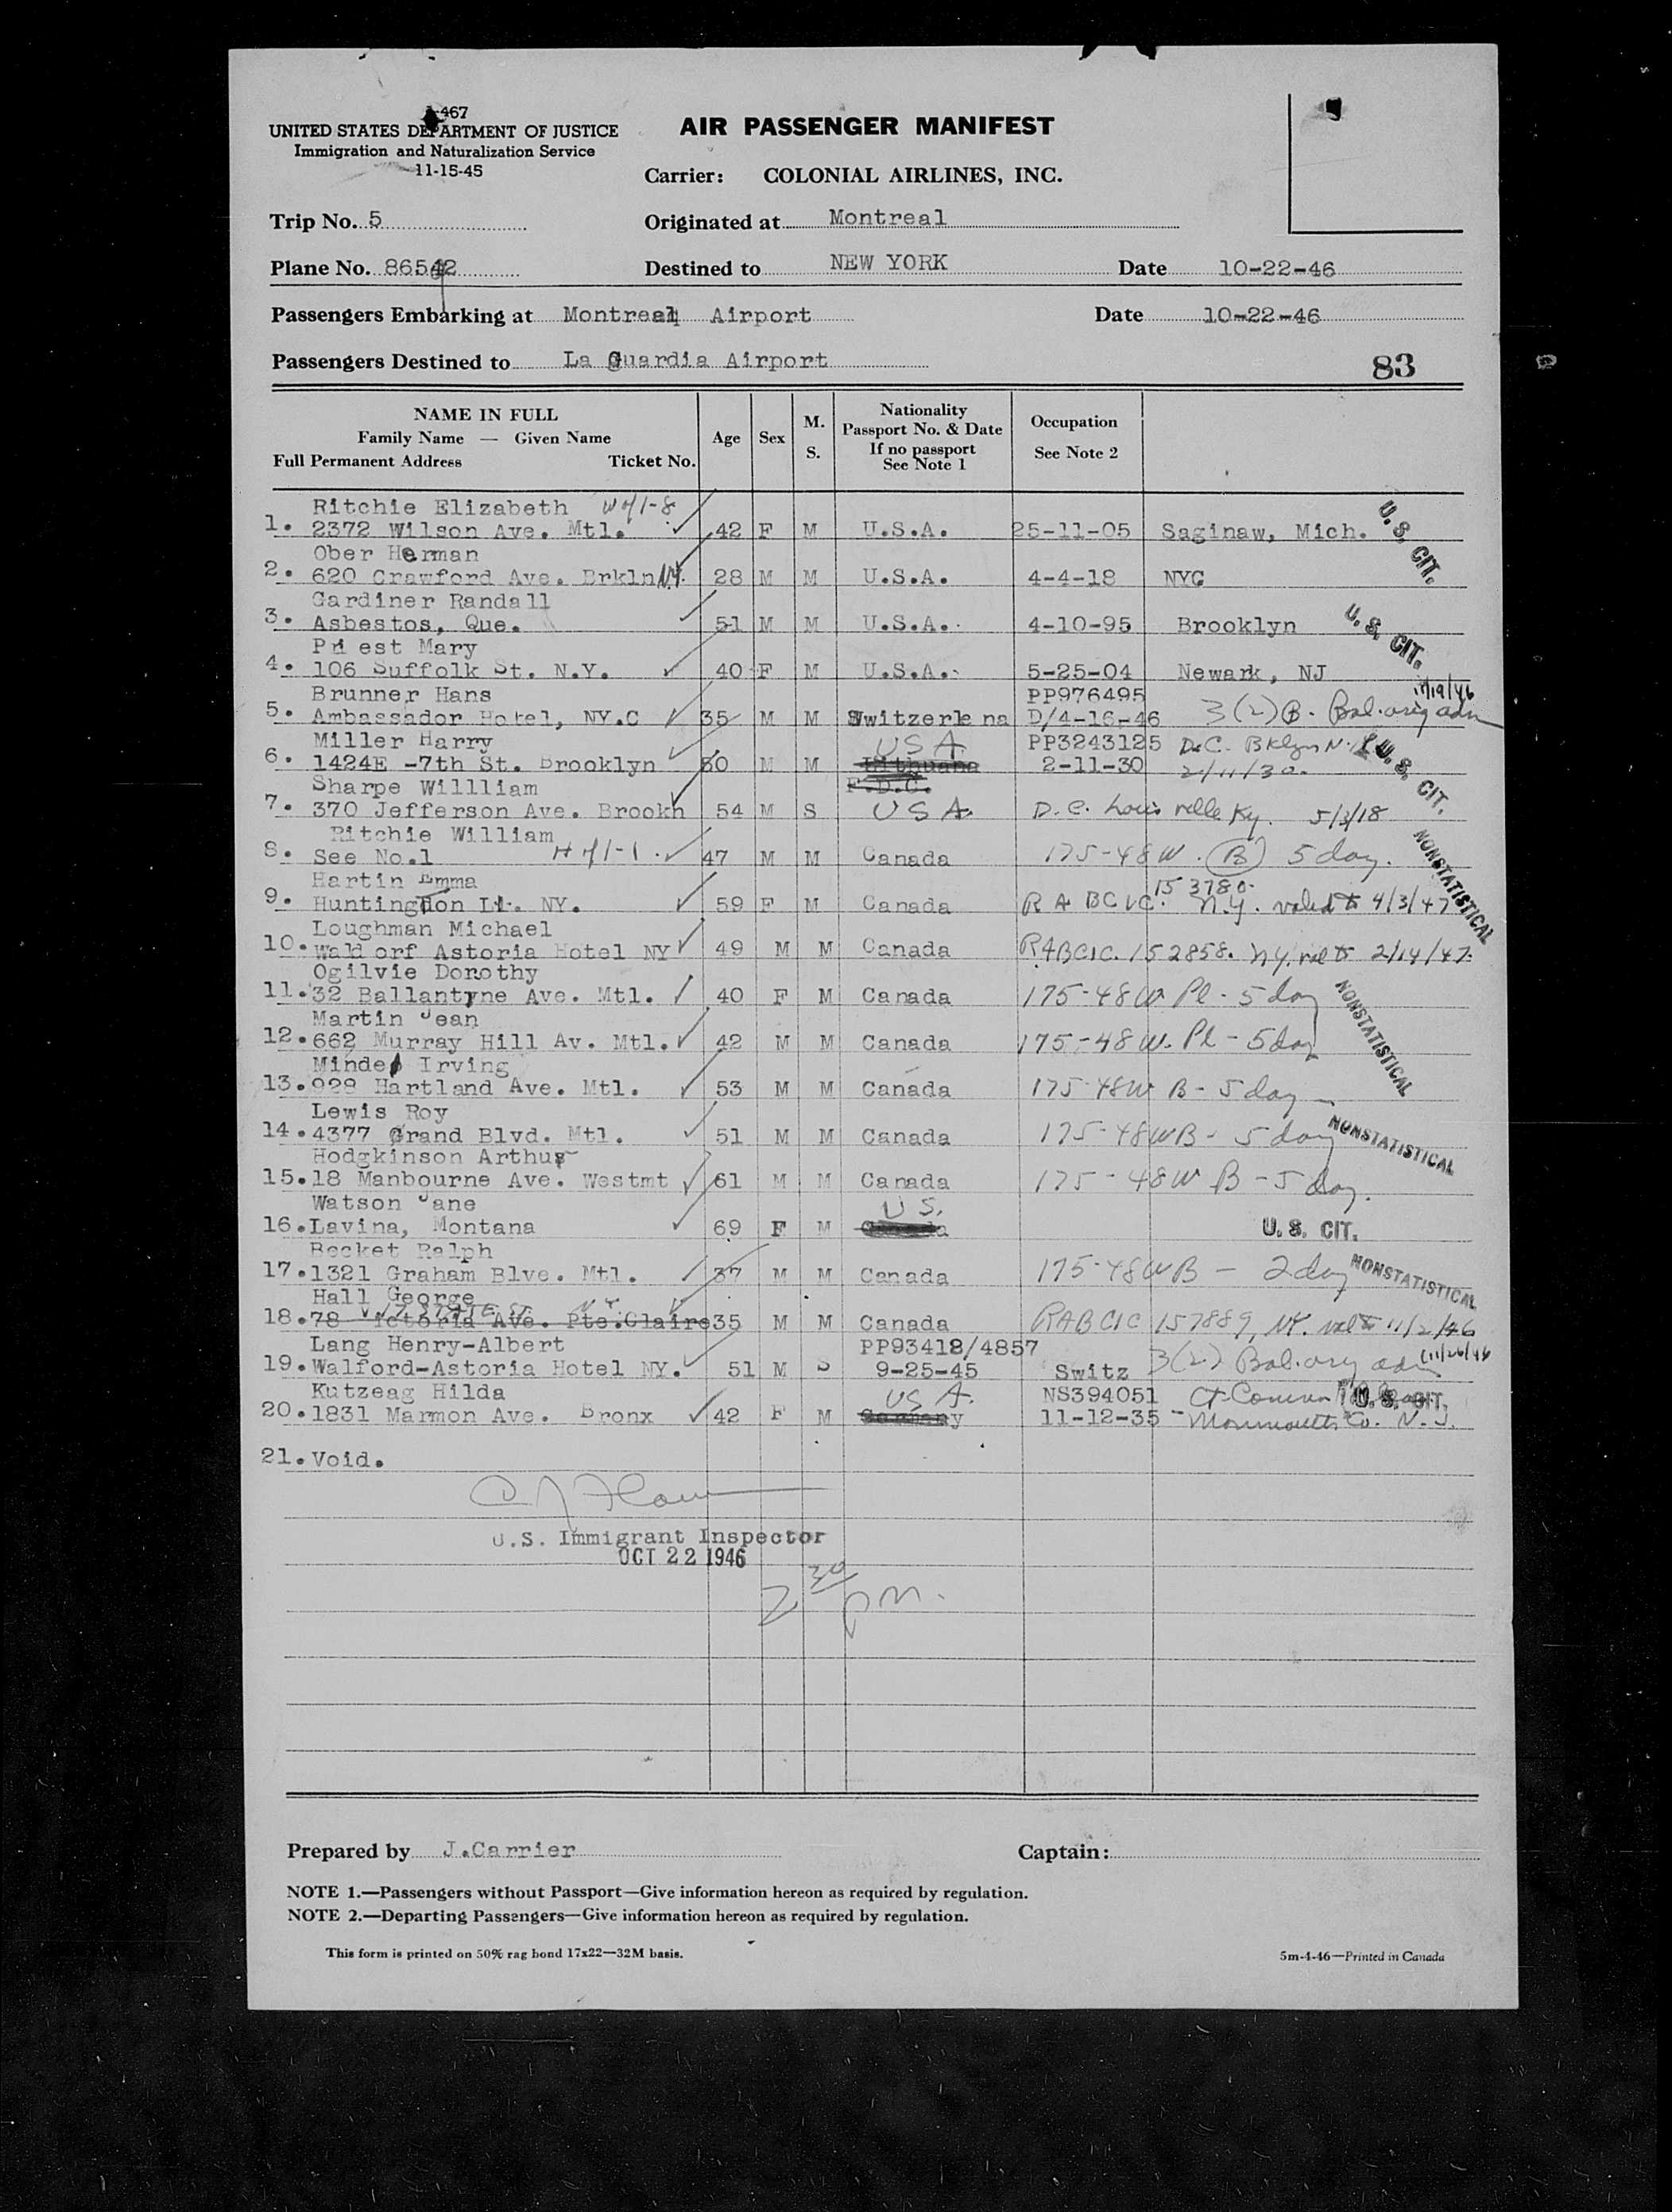 I-467
UNITED STATES DEPARTMENT OF JUSTICE
Immigration and Naturalization Service
11-15-45
AIR PASSENGER MANIFEST
Carrier: COLONIAL AIRLINES, INC.
Trip No. 5 Originated at Montreal
Plane No. 86542 Destined to NEW YORK Date 10-22-46
Passengers Embarking at Montreal Airport Date 10-22-46
Passengers Destined to La Guardia Airport
83
NAME IN FULL
Family Name — Given Name
Full Permanent Address Ticket No.
Age Sex M. S.
Nationality
Passport No. & Date
If no passport
See Note 1
Occupation
See Note 2
Ritchie Elizabeth W of 1-8
1. 2372 Wilson Ave. Mtl. 42 F M U.S.A. 25-11-05 Saginaw, Mich. U.S. CIT.
Ober Herman
2. 620 Crawford Ave. Brkln N.Y. 28 M M U.S.A. 4-4-18 NYC
Gardiner Randall
3. Asbestos, Que. 51 M M U.S.A. 4-10-95 Brooklyn U.S. CIT.
Pri est Mary
4. 106 Suffolk St. N.Y. 40 F M U.S.A. 5-25-04 Newark, NJ
Brunner Hans PP976495 11/19/46
5. Ambassador Hotel, NY.C 35 M M Switzerla na D/4-16-46 3(2)B. Bal. orig adm
Miller Harry USA PP3243125 D.C. Bklyn N.Y.
6. 1424E -7th St. Brooklyn 50 M M Lithuana 2-11-30 2/11/30. U.S. CIT.
Sharpe Willliam F.D.C.
7. 370 Jefferson Ave. Brookn 54 M S USA D.C. Louisville Ky. 5/3/18
Ritchie William H of 1-1.
8. See No.1 47 M M Canada 175-48W. (B) 5 day. NONSTATISTICAL
Hartin Emma 153780.
9. Huntington LI. NY. 59 F M Canada RABCIC. N.Y. valid to 4/3/47
Loughman Michael
10. Wald orf Astoria Hotel NY 49 M M Canada RABCIC. 152858. NY. val to 2/14/47.
Ogilvie Dorothy
11. 32 Ballantyne Ave. Mtl. 40 F M Canada 175-48W Pl - 5 day NONSTATISTICAL
Martin Jean
12. 662 Murray Hill Av. Mtl. 42 M M Canada 175-48W. Pl - 5 day
Minde Irving
13. 929 Hartland Ave. Mtl. 53 M M Canada 175-48W B - 5 day
Lewis Roy
14. 4377 Grand Blvd. Mtl. 51 M M Canada 175-48WB - 5 day NONSTATISTICAL
Hodgkinson Arthur
15. 18 Manbourne Ave. Westmt 61 M M Canada 175-48W B - 5 day.
Watson Jane U.S.
16. Lavina, Montana 69 F M Canada U.S. CIT.
Becket Ralph
17. 1321 Graham Blve. Mtl. 37 M M Canada 175-48WB - 2 day NONSTATISTICAL
Hall George
18. 78 Victoria Ave. Pte.Claire 35 M M Canada RABCIC 157889, NY. val to 11/2/46
Lang Henry-Albert PP93418/4857 11/26/46
19. Walford-Astoria Hotel NY. 51 M S 9-25-45 Switz 3(2) Bal. orig adm
Kutzeag Hilda USA. NS394051 Ct Common U.S. CIT.
20. 1831 Marmon Ave. Bronx 42 F M Germany 11-12-35 - Monmouth Co. N.J.
21. Void.
U.S. Immigrant Inspector
OCT 22 1946
2 30 pm.
Prepared by J.Carrier Captain:
NOTE 1.—Passengers without Passport—Give information hereon as required by regulation.
NOTE 2.—Departing Passengers—Give information hereon as required by regulation.
This form is printed on 50% rag bond 17x22—32M basis. 5m-4-46—Printed in Canada